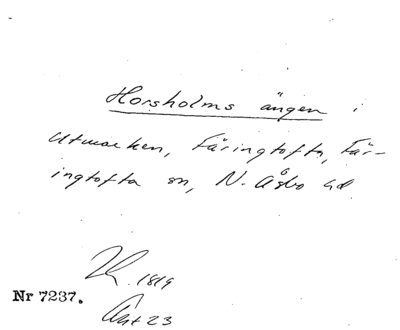 Horsholms ängen i
utmarken, Färingtofta, Fär-
ingtofta sn, N. Åsbo hd
1819
Nr 7237.
Akt 23